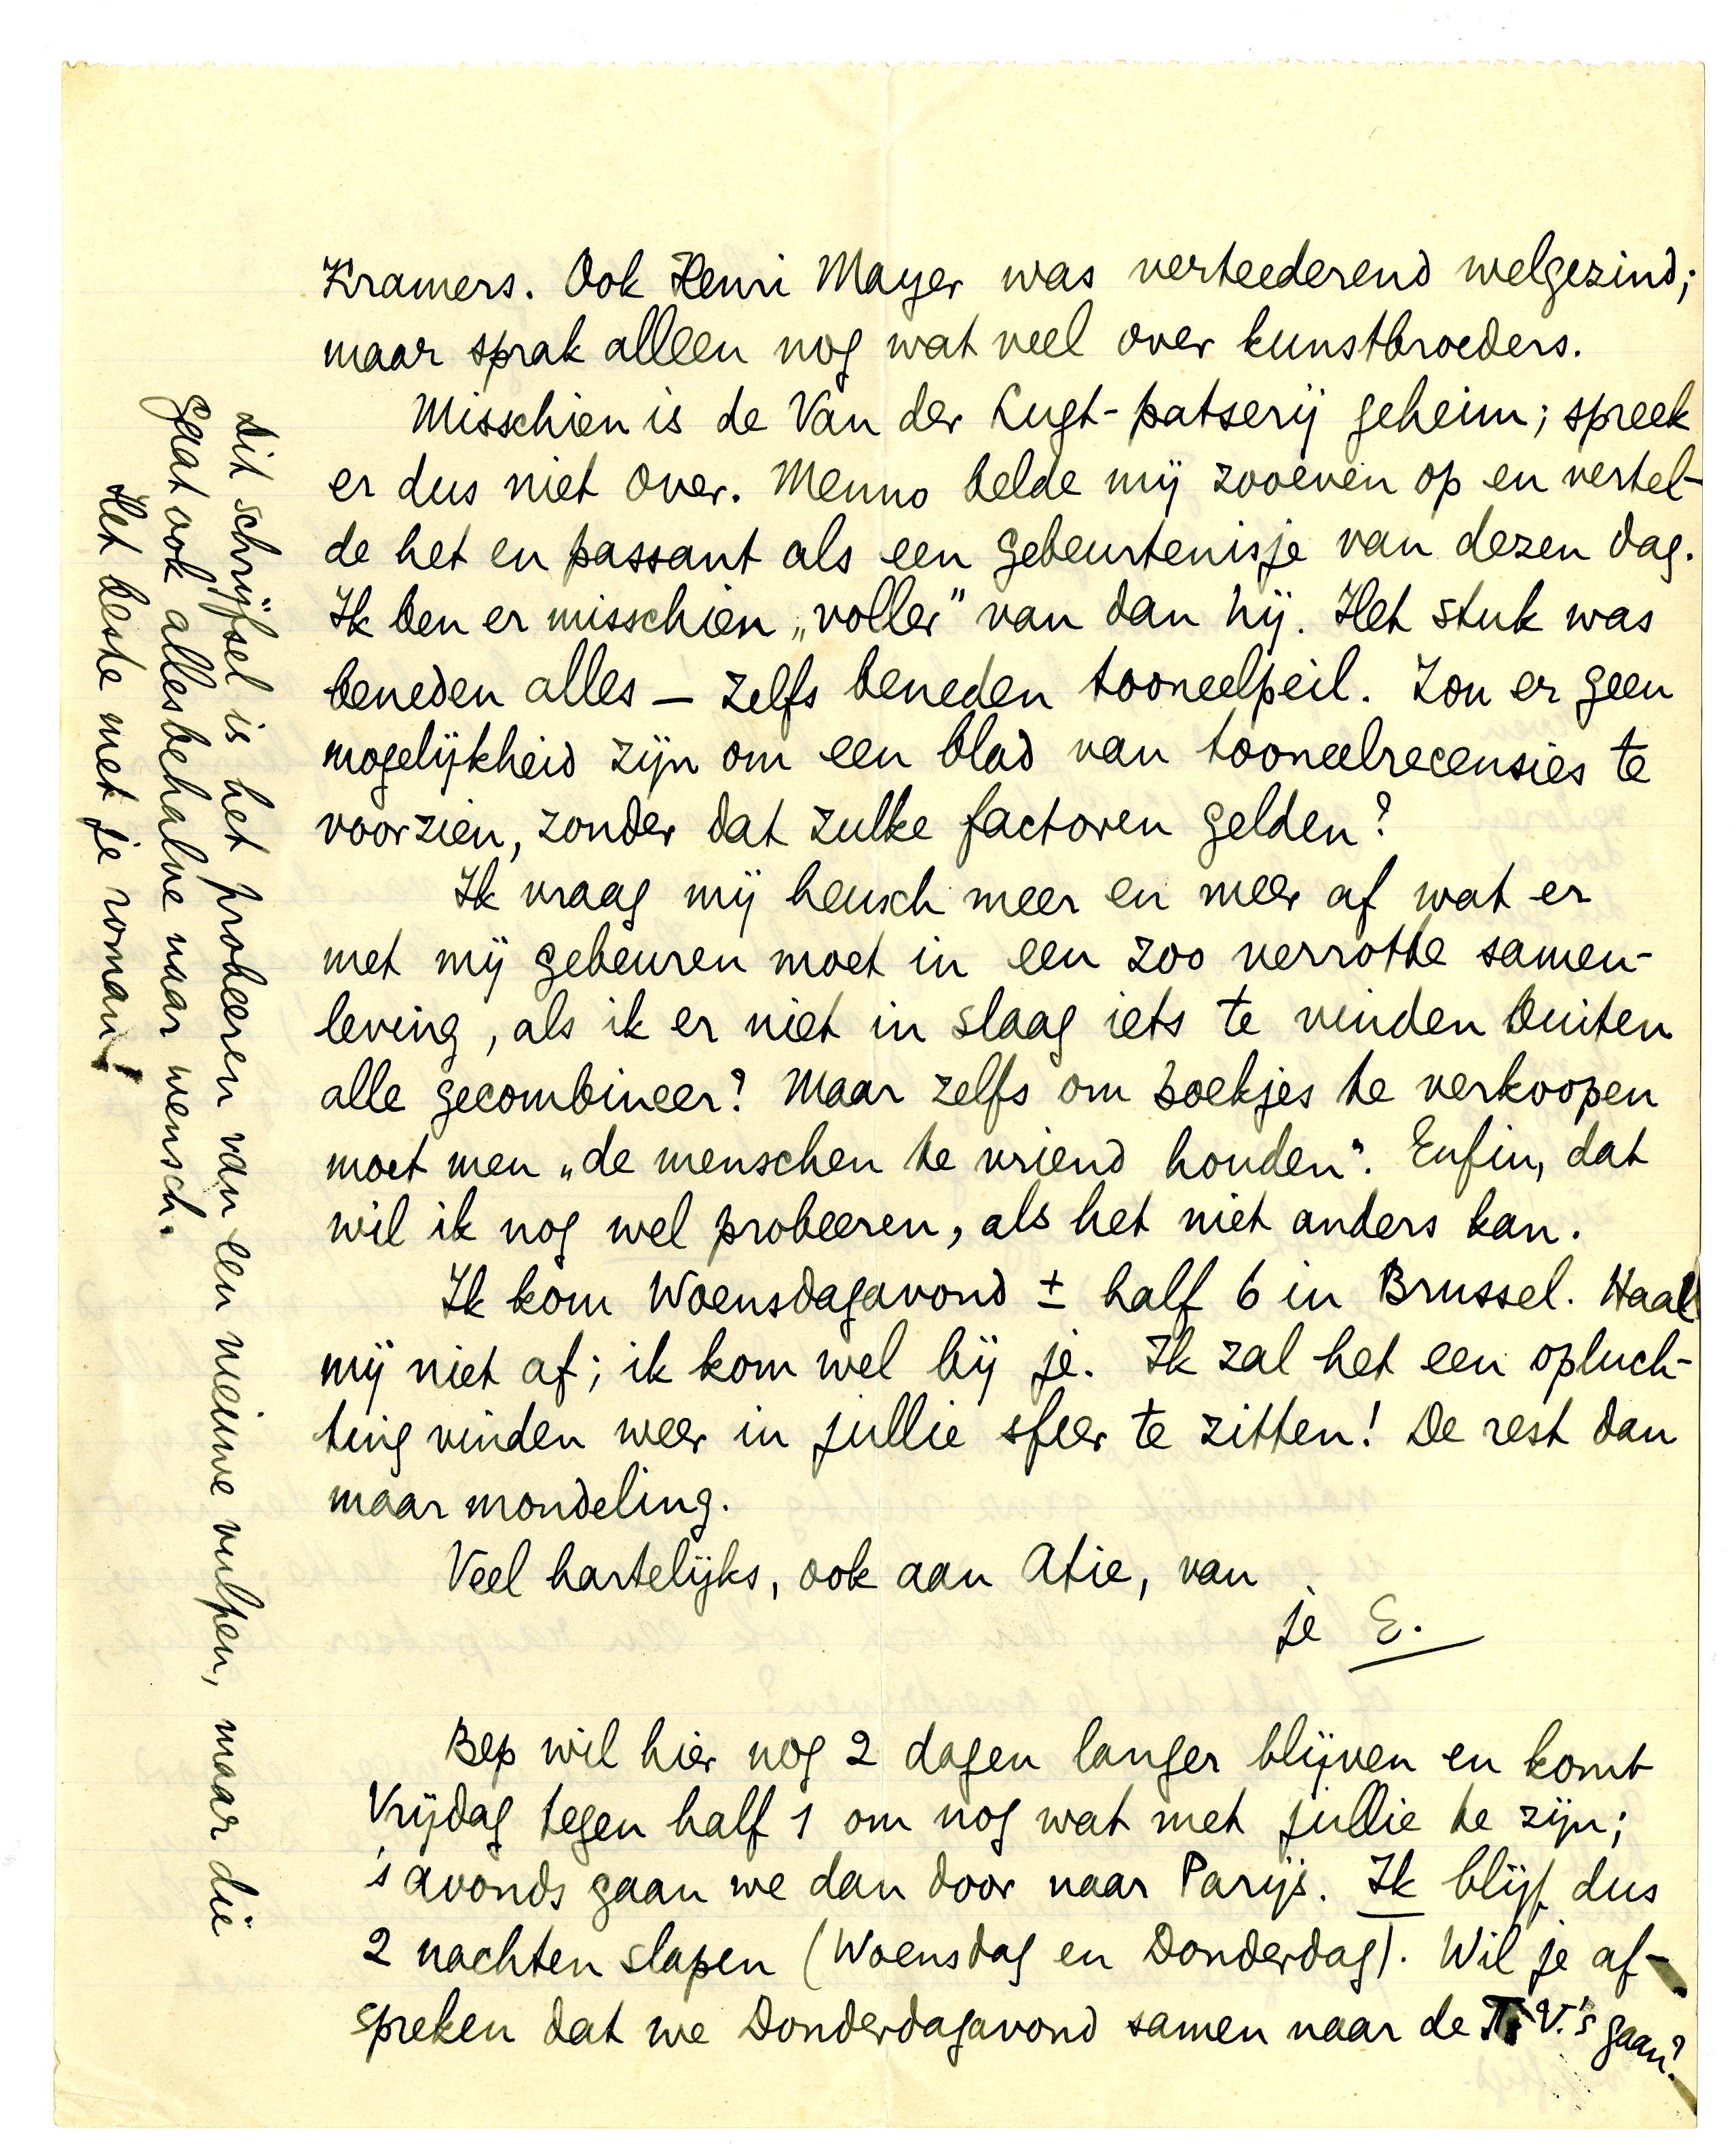 Kramers. Ook Henri Mayer was verteederend welgezind;
maar sprak alleen nog wat veel over kunstbroeders.
Misschien is de Van der Lugt-patserij geheim; spreek
er dus niet over. Menno belde mij zooeven op en vertel-
de het en passant als een gebeurtenisje van dezen dag.
Ik ben er misschien „voller” van dan hij. Het stuk was
beneden alles — zelfs beneden tooneelpeil. Zou er geen
mogelijkheid zijn om een blad van tooneelrecensies te
voorzien, zonder dat zulke factoren gelden?
Ik vraag mij heusch meer en meer af wat er
met mij gebeuren moet in een zoo verrotte samen-
leving, als ik er niet in slaag iets te vinden buiten
alle gecombineer? Maar zelfs om boekjes te verkoopen
moet men „de menschen te vriend houden”. Enfin, dat
wil ik nog wel probeeren, als het niet anders kan.
Ik kom Woensdagavond ± half 6 in Brussel. Haal
mij niet af; ik kom wel bij je. Ik zal het een opluch-
ting vinden weer in jullie sfeer te zitten! De rest dan
maar mondeling.
Veel hartelijks, ook aan Atie, van
je E.
Bep wil hier nog 2 dagen langer blijven en komt
Vrijdag tegen half 1 om nog wat met jullie te zijn;
's avonds gaan we dan door naar Parijs. Ik blijf dus
2 nachten slapen (Woensdag en Donderdag). Wil je af-
spreken dat we Donderdagavond samen naar de V.'s gaan?
Dit schrijfsel is het probeeren van een nieuwe vulpen, maar die
gaat ook allesbehalve naar wensch.
Het beste met je roman!